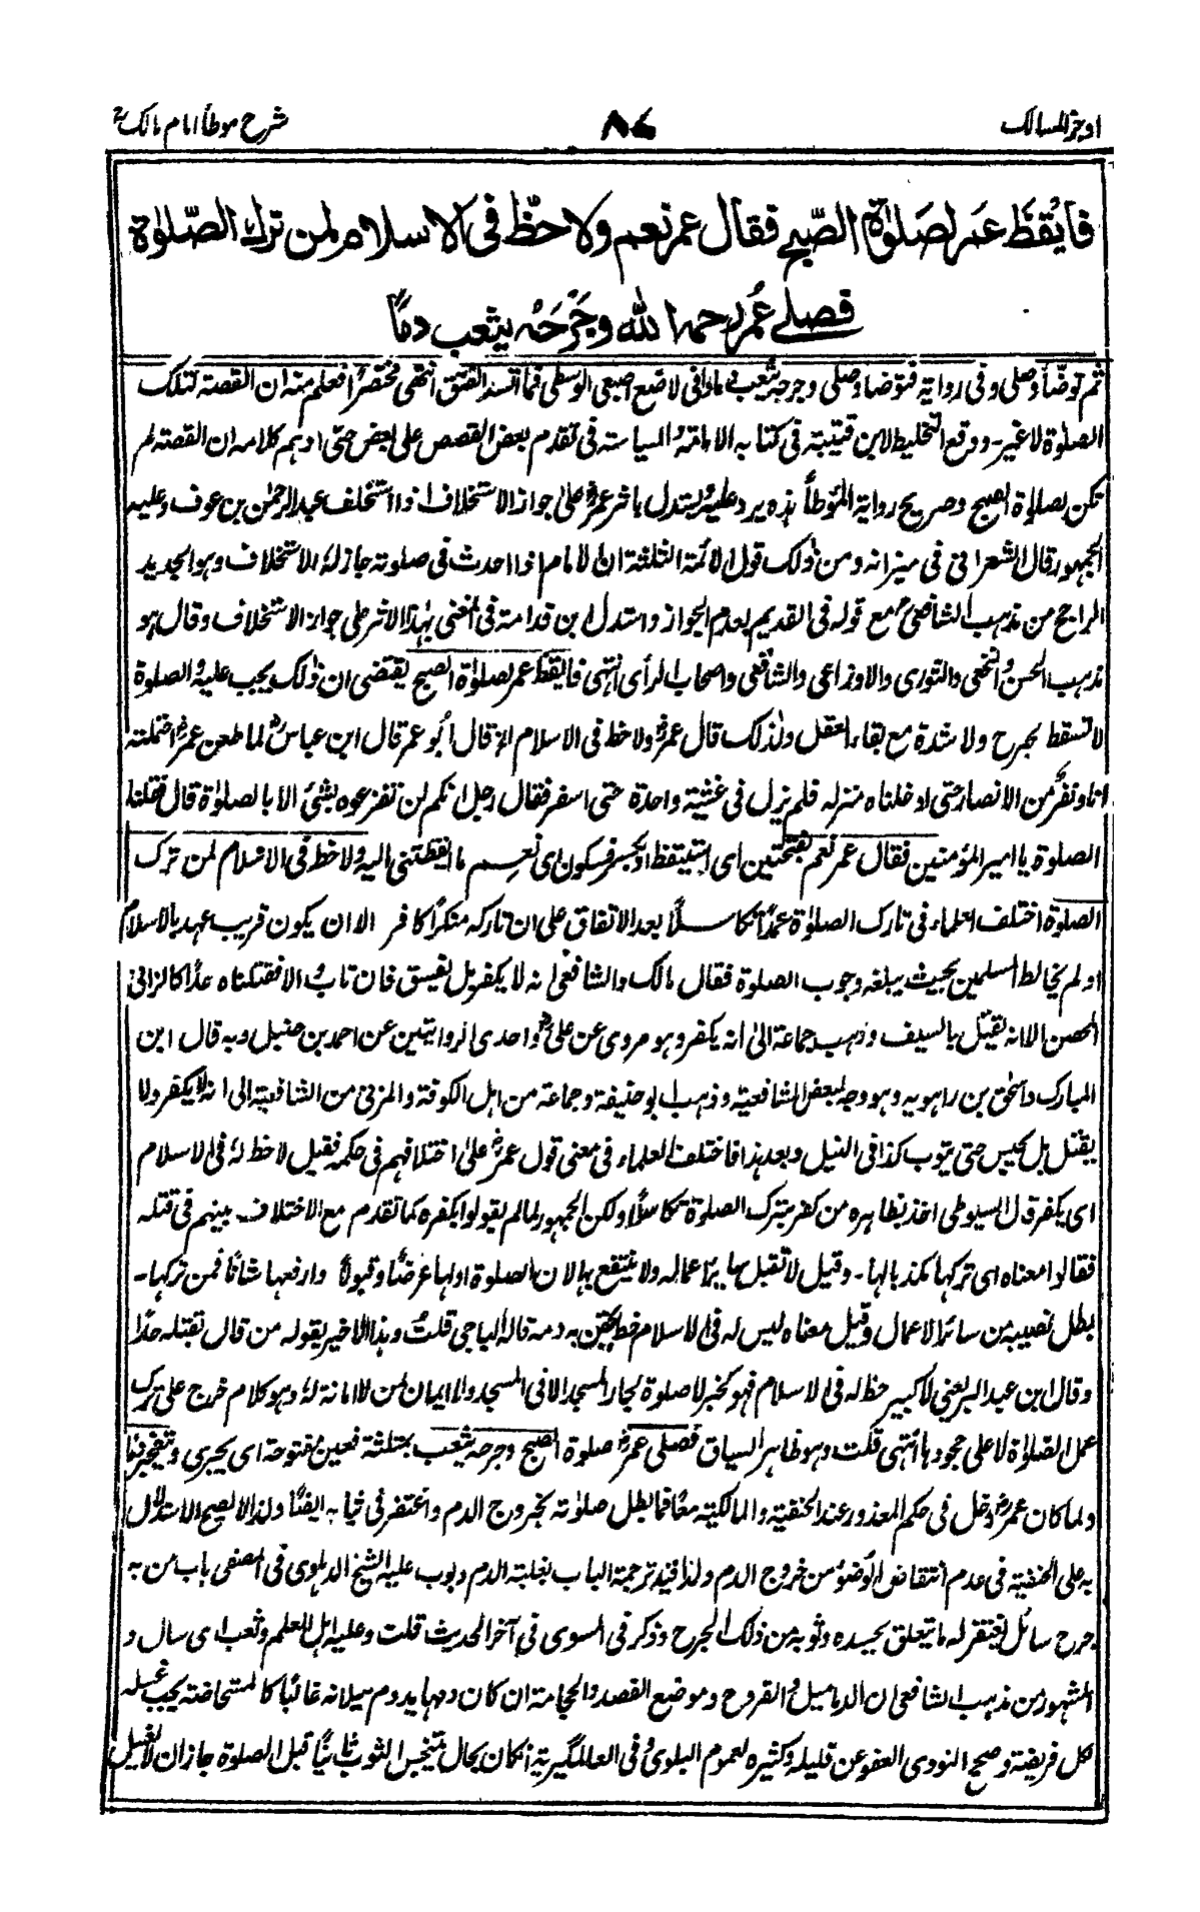 اوجز المسالک
۸۷
شرح موطأ امام مالکؒ
فایقظ عمر لصلوٰة الصّبح فقال عمر نعم ولا حظّ فی الاسلام لمن ترک الصّلوٰة
فصلے عُمر رحمه الله وجَرحُه یثعب دمًا
ثم توضأ وصلی وفی روایة فتوضأ وصلی وجرحه یثعب دما وانی لاضع اصبعی الوسطی فما انسد الفتق انتهی مختصرا فعلم منه ان القصة لتلک
الصلوة لاغیر۔ ووقع التخلیط لابن قتیبة فی کتابه الامامة والسیاسة فی تقدم بعض القصص علی بعض حتی اوهم کلامه ان القصة لم
تکن لصلوة الصبح وصریح روایة المؤطأ هذه یرد علیه ویستدل باثر عمرؓ علی جواز الاستخلاف اذا استخلف عبدالرحمٰن بن عوف وعلیه
الجمهور قال الشعرانی فی میزانه ومن ذٰلک قول الائمة الثلثة ان الامام اذا احدث فی صلوته جاز له الاستخلاف وهو الجدید
الراجح من مذهب الشافعیؒ مع قوله فی القدیم بعدم الجواز واستدل ابن قدامة فی المغنی بهٰذا الاثر علی جواز الاستخلاف وقال هو
مذهب الحسن والنخعی والثوری والاوزاعی والشافعی واصحاب الرأی انتهی فایقظ عمر لصلوٰة الصبح یقتضی ان ذٰلک یجب علیه الصلوة
لا تسقط بجرح ولا شدة مع بقاء العقل ولذلک قال عمرؓ ولا حظ فی الاسلام الخ قال ابو عمر قال ابن عباسؓ لما طعن عمرؓ احتملته
انا ونفر من الانصار حتی ادخلناه منزله فلم یزل فی غشیة واحدة حتی اسفر فقال رجل انکم لن تفزعوه بشئ الا بالصلوٰة قال فقلنا
الصلوة یا امیر المؤمنین فقال عمر نعم بفتحتین ای استیقظ او بکسر فسکون ای نعم ما ایقظتنی الیه ولا حظ فی الاسلام لمن ترک
الصلوة اختلف العلماء فی تارک الصلوٰة عمدًا تکاسلًا بعد الاتفاق علی ان تارکه منکرًا کافر الا ان یکون قریب عهد بالاسلام
او لم یخالط المسلمین بحیث یبلغه وجوب الصلوة فقال مالک والشافعی انه لا یکفر بل یفسق فان تاب والا فقتلناه حدًا کالزانی
المحصن الا انه یقتل بالسیف وذهب جماعة الیٰ انه یکفر وهو مروی عن علیؓ واحدی الروایتین عن احمد بن حنبل وبه قال ابن
المبارک واسحٰق بن راهویه وهو وجه لبعض الشافعیة وذهب ابو حنیفة وجماعة من اهل الکوفة والمزنی من الشافعیة الی انه لا یکفر ولا
یقتل بل یحبس حتی یتوب کذا فی النیل وبعد هذا فاختلف العلماء فی معنی قول عمرؓ علیٰ اختلافهم فی حکمه فقیل لا حظ له فی الاسلام
ای یکفر قال السیوطی اخذ بظاهره من کفر بترک الصلوة تکاسلًا ولکن الجمهور لما لم یقولوا بکفره کما تقدم مع الاختلاف بینهم فی قتله
فقالوا معناه ای ترکها مکذبا لها۔ وقیل لا تقبل سائر اعماله ولا ینتفع بها لان الصلوة اولها عرضًا وقبولًا وارفعها شانًا فمن ترکها۔
بطل نصیبه من سائر الاعمال وقیل معناه لیس له فی الاسلام حظ یحقن به دمه قاله الباجی قلت وهذا الاخیر یقوله من قال بقتله حدًا
وقال ابن عبد البر یعنی لا کبیر حظ له فی الاسلام فهو کخبر لا صلوة لجار المسجد الا فی المسجد ولا ایمان لمن لا امانة له وهو کلام خرج علی ترک
عمل الصلوٰة لا علی جحودها انتهی قلت وهو ظاهر السیاق فصلی عمرؓ صلوة الصبح وجرحه یثعب بمثلثة فعین مفتوحة ای یجری ویتفجر دمًا
ولما کان عمرؓ دخل فی حکم المعذور عند الحنفیة والمالکیة معًا فما بطل صلوته بخروج الدم واغتفر فی ثیابه ایضًا ولذا لا یصح الاستدلال
به علی الحنفیة فی عدم انتقاض الوضوء من خروج الدم ولذا قید ترجمة الباب بغلبة الدم وبوب علیه الشیخ الدهلوی فی المصفی باب من به
جرح سائل یغتفر له ما یتعلق بجسده وثوبه من ذلک الجرح وذکر فی المسوی فی آخر الحدیث قلت وعلیه اهل العلم ویثعب ای سال و
المشهور من مذهب الشافعی ان الدمامیل والقروح وموضع الفصد والحجامة ان کان دمها یدوم سیلانه غالبًا کالمستحاضة یجب غسله
لکل فریضة وصحح النووی العفو عن قلیله وکثیره لعموم البلوی وفی العالمگیریة ان کان بحال یتنجس الثوب ثانیًا قبل الصلوة جاز ان لا یغسل